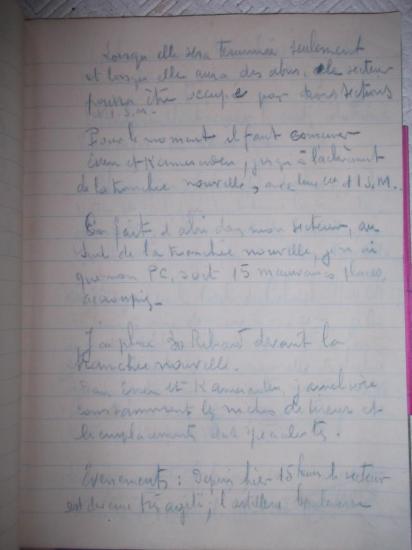 Lorsqu'elle sera terminée seulement
et lorsqu'elle aura des abris, le secteur
pourra être occupé par deux sections
+ 1 S.M.
Pour le moment il faut conserver
et Kamerinckx, jusqu'à l'achèvement
de la tranchée nouvelle, avec 1 S.M.
En fait d'abri dans mon secteur, au
Sud de la tranchée nouvelle, je n'ai
que mon PC, soit 15 mauvaises places,
accroupis.
J'ai placé Ribard devant la
tranchée nouvelle.
et j'améliore
constamment les niches de tireurs et
les emplacements des
Evenements : Depuis hier 15 heures le secteur
est devenu très agité ; l'artillerie